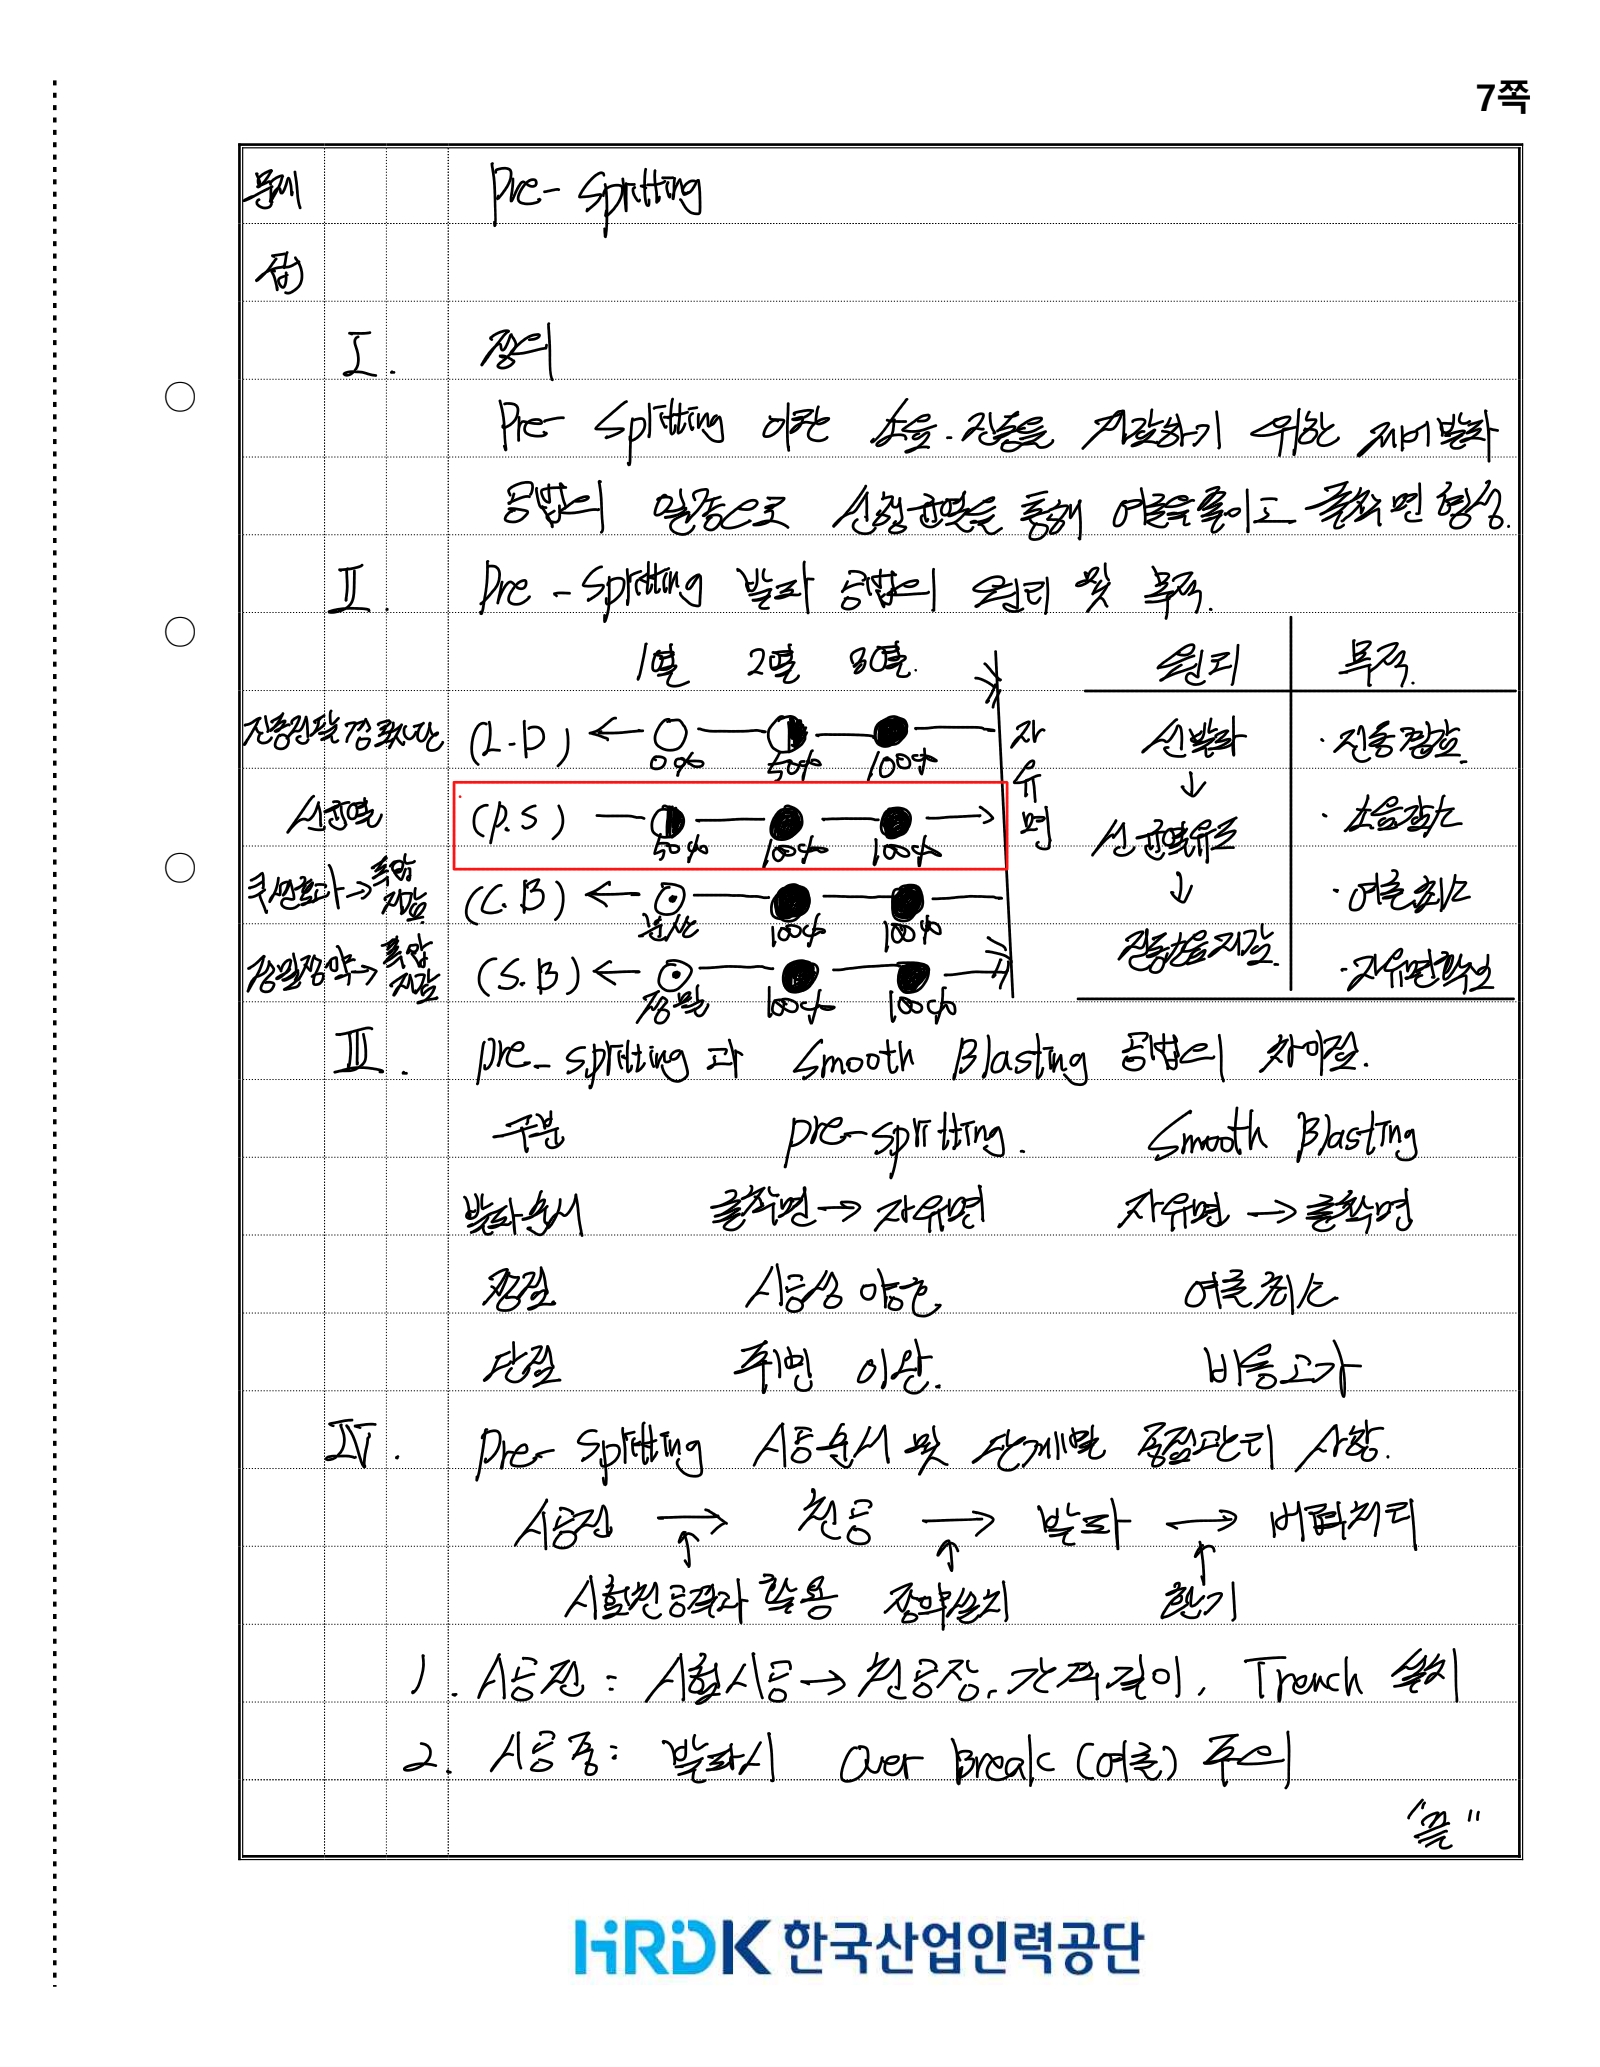 7쪽
문제 Pre-Splitting
답
I. 정의
Pre-Splitting 이란 소음.진동을 저감하기 위한 제어발파
공법의 일종으로 선행균열을 통해 여굴을 줄이고 굴착면 형성.
II. Pre-Splitting 발파 공법의 원리 및 목적.
1열 2열 3열. 원리 목적.
진동전달경로차단 (L.D) 0% 50% 100% 자유면 선발파 · 진동경감.
선균열 (P.S) 50% 100% 100% ↓ 선균열유도 · 소음감소
쿠션효과→폭압저감. (C.B) 분산 100% 100% ↓ · 여굴최소
정밀장약→폭압저감 (S.B) 정밀 100% 100% 진동소음저감. · 자유면확보
III. Pre-Splitting과 Smooth Blasting 공법의 차이점.
구분 Pre-Splitting. Smooth Blasting
발파순서 굴착면→자유면 자유면→굴착면
장점 시공성 양호 여굴최소
단점 주변 이완. 비용고가
IV. Pre-Splitting 시공순서 및 단계별 중점관리 사항.
시공전 → 천공 → 발파 → 버력처리
↑ ↑ ↑
시험천공결과 활용 장약설치 환기
1. 시공전: 시험시공→천공장.간격.길이, Trench 설치
2. 시공중: 발파시 Over Break (여굴) 주의
"끝"
HRDK 한국산업인력공단